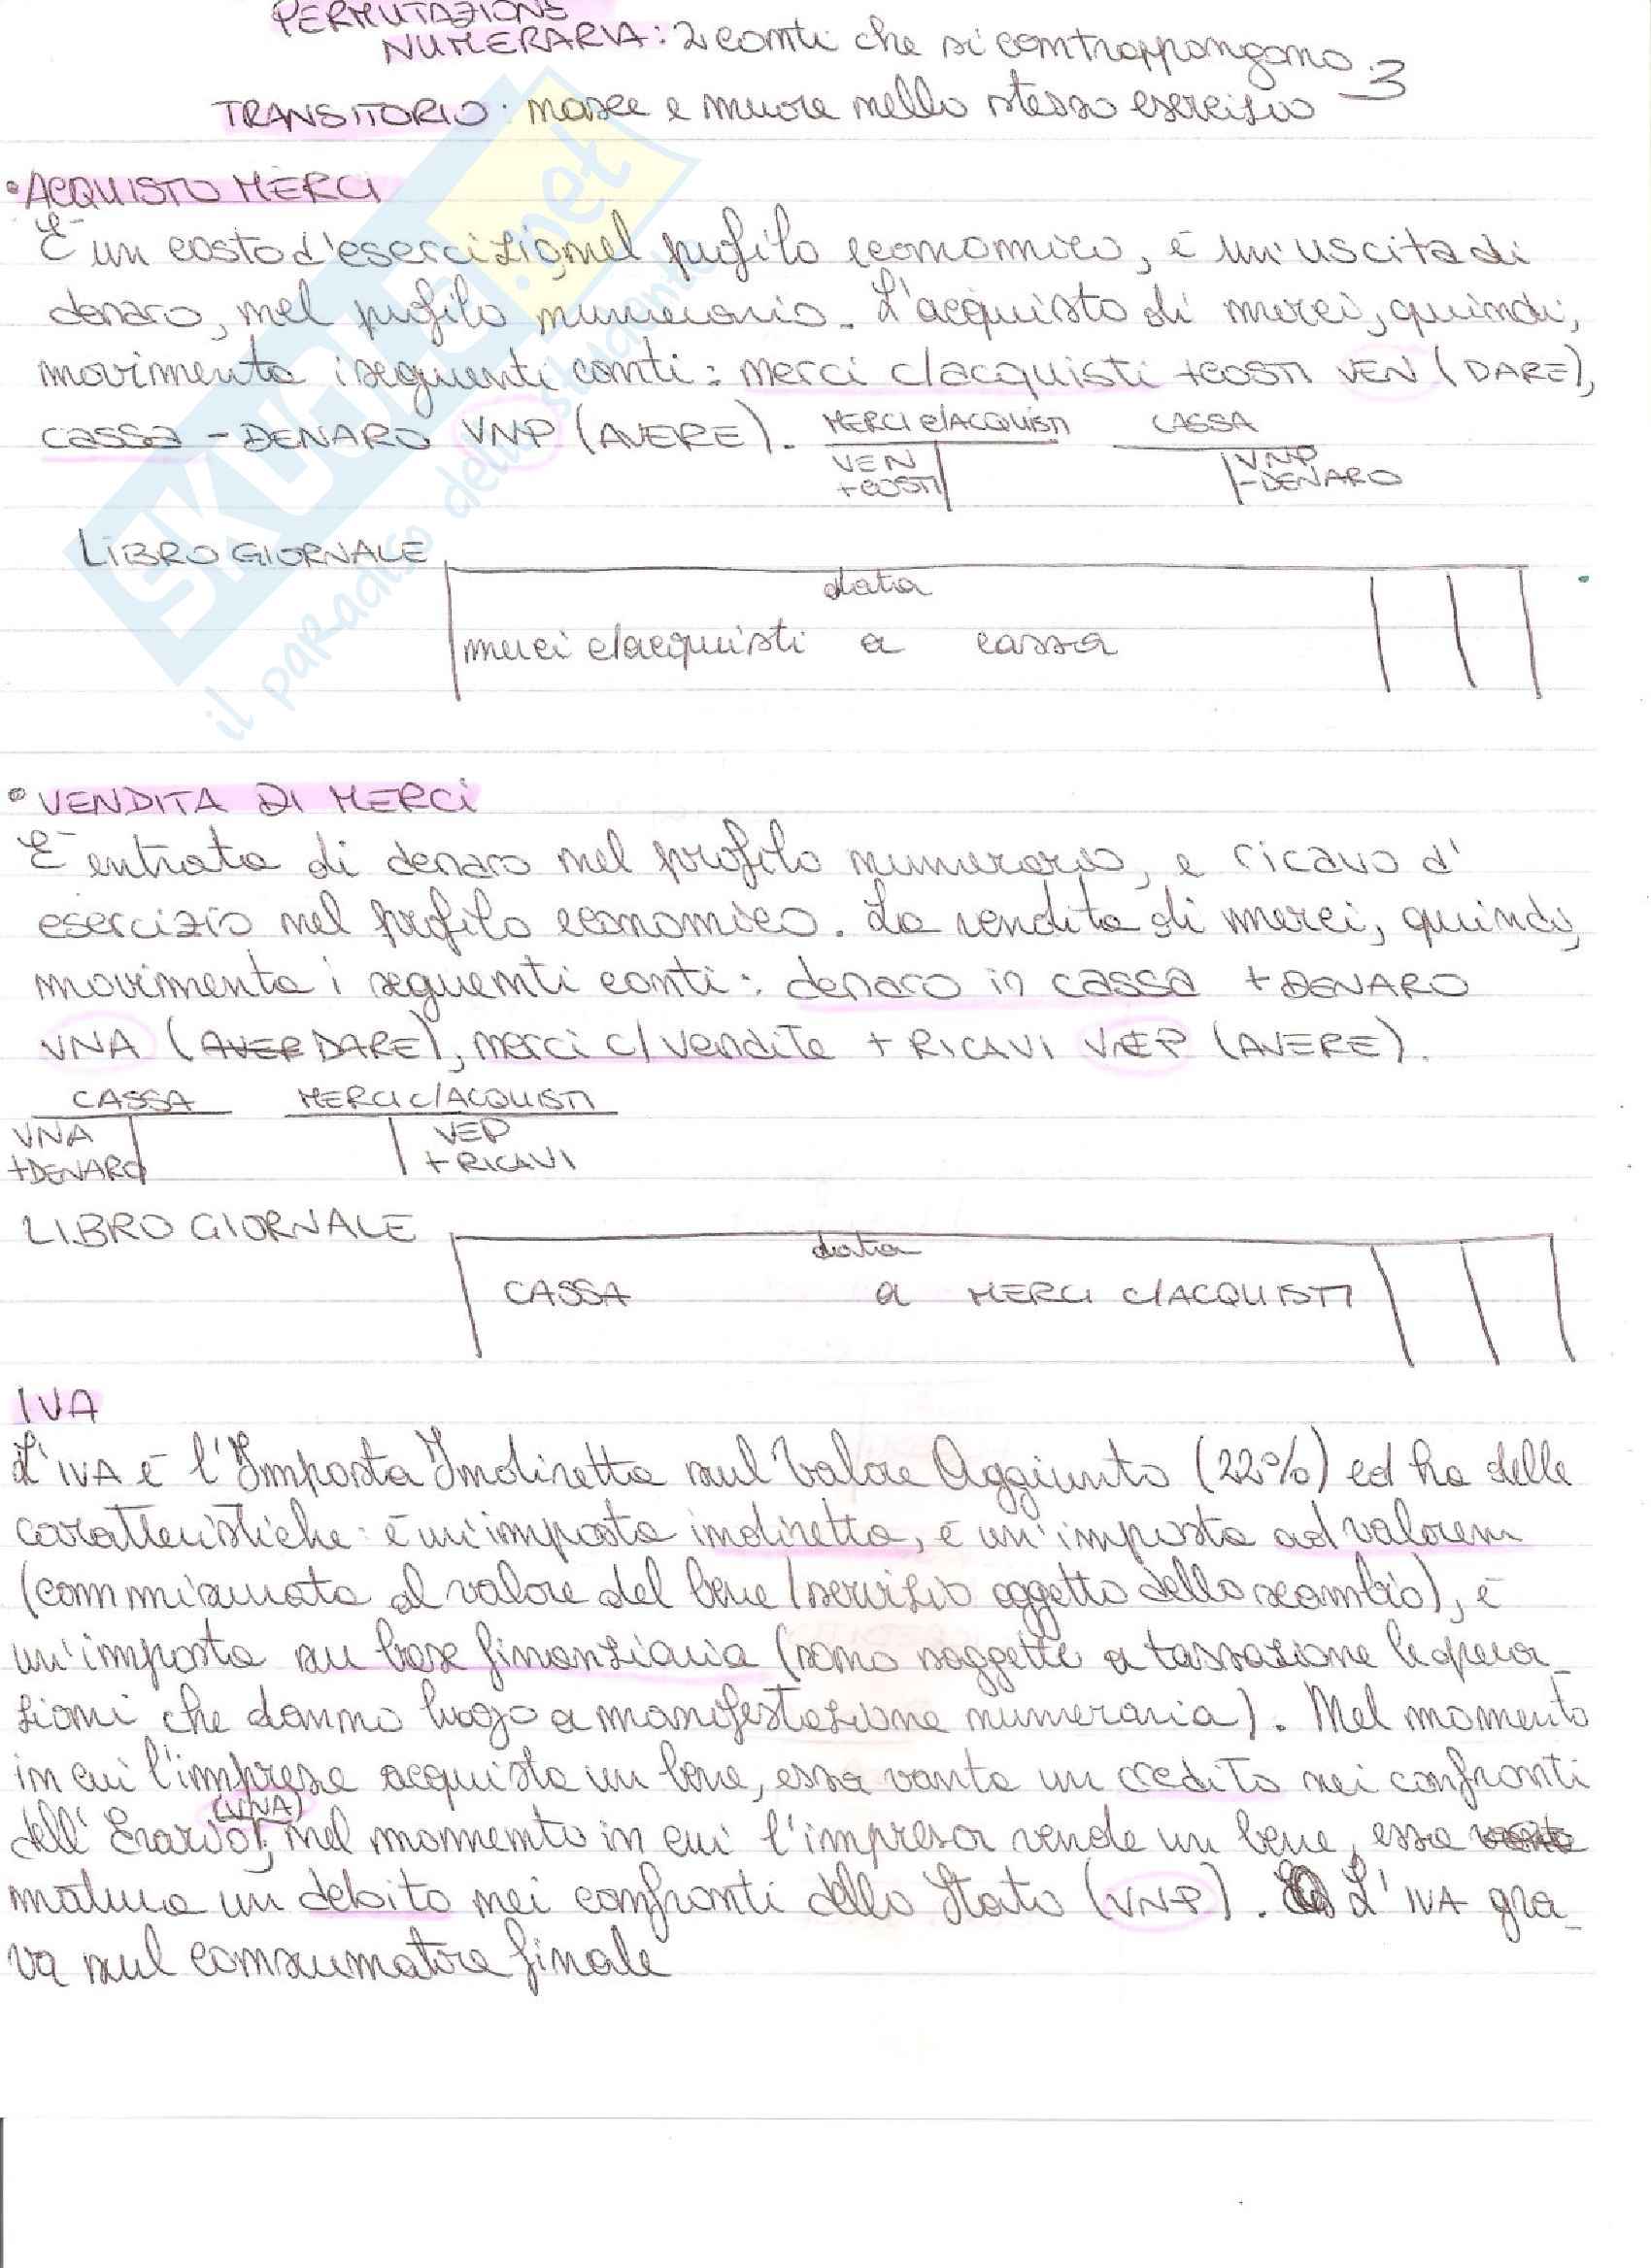 PERMUTAZIONE
NUMERARIA: 2 conti che si contrappongono. 3
TRANSITORIO: nasce e muore nello stesso esercizio
• ACQUISTO MERCI
È un costo d'esercizio, nel profilo economico, è un'uscita di
denaro, nel profilo numerario. L'acquisto di merci, quindi,
movimenta i seguenti conti: merci c/acquisti +COSTI VEN (DARE),
cassa - DENARO VNP (AVERE). MERCI C/ACQUISTI CASSA
VEN VNP
+COSTI -DENARO
LIBRO GIORNALE
data
merci c/acquisti a cassa
• VENDITA DI MERCI
È entrata di denaro nel profilo numerario, e ricavo d'
esercizio nel profilo economico. La vendita di merci, quindi,
movimenta i seguenti conti: denaro in cassa + DENARO
VNA (AVER DARE), merci c/vendite + RICAVI VEP (AVERE).
CASSA MERCI C/ACQUISTI
VNA VEP
+DENARO +RICAVI
LIBRO GIORNALE
data
CASSA a MERCI C/ACQUISTI
IVA
L'IVA è l'Imposta Indiretta sul Valore Aggiunto (22%) ed ha delle
caratteristiche: è un'imposta indiretta, è un'imposta ad valorem
(commisurata al valore del bene/servizio oggetto dello scambio), è
un'imposta su base finanziaria (sono soggette a tassazione le opera-
zioni che danno luogo a manifestazione numeraria). Nel momento
in cui l'impresa acquista un bene, essa vanta un credito nei confronti
dell'Erario (VNA); nel momento in cui l'impresa vende un bene, essa
matura un debito nei confronti dello Stato (VNP). L'IVA gra-
va sul consumatore finale
SKUOLA.net
il paradiso dello studente